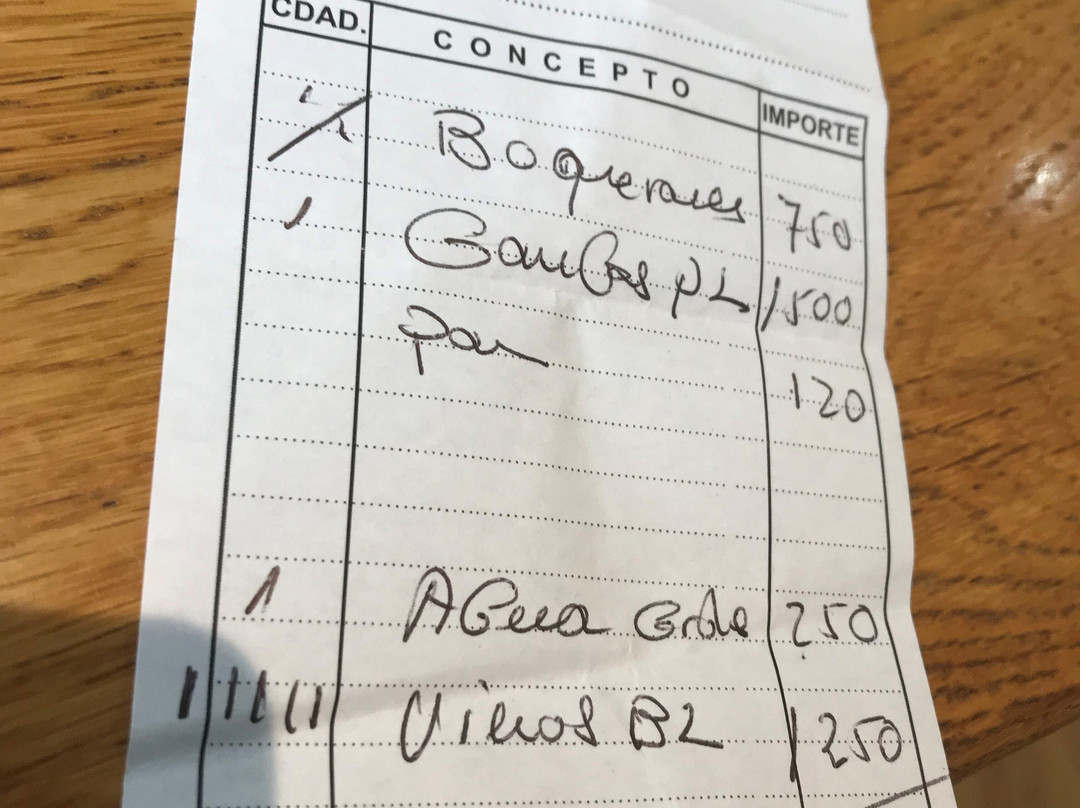 CDAD. CONCEPTO IMPORTE
Boquerones 750
1 Gambas pL 1500
Pan 120
1 AGua Grde 250
IIIII Vinos BL 1250